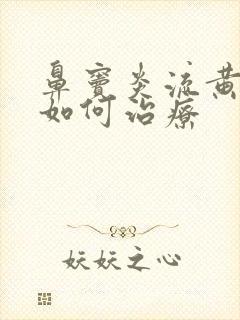 鼻窦炎流黄
如何治疗
妖妖之心